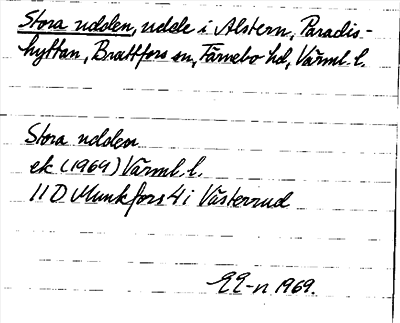 Stora udden, udde i Alstern, Paradis-
hyttan, Brattfors sn, Färnebo hd, Värml. l.
Stora udden
ek (1969) Värml. l.
11 D Munkfors 4 i Västerrud
EE-n 1969.